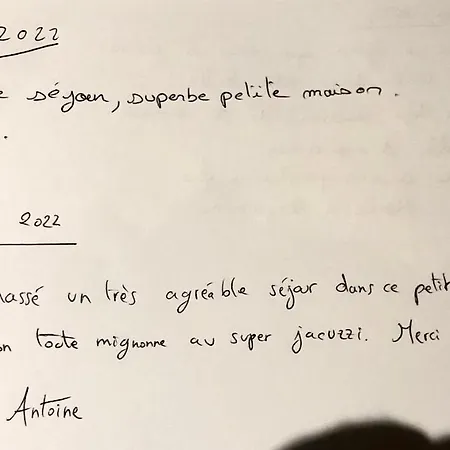 2022
séjour, superbe petite maison.
.
2022
passé un très agréable séjour dans ce petit
on toute mignonne au super jacuzzi. Merci
Antoine